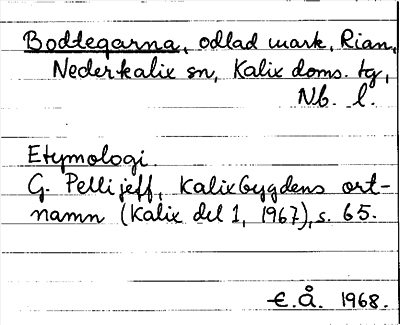 Bodtegarna, odlad mark, Rian,
Nederkalix sn, Kalix doms. tg,
Nb. l.
Etymologi.
G. Pellijeff, Kalixbygdens ort-
namn (Kalix del 1, 1967), s. 65.
E.Å. 1968.